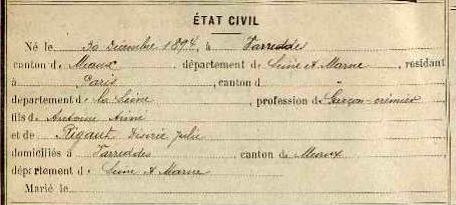 ÉTAT CIVIL
Né le 30 Décembre 1894, à Varreddes
canton de Meaux, département de Seine & Marne, résidant
à Paris, canton d "
département de la Seine, profession de Garçon-crémier
fils de Antoine
et de Rigaut Désirée Julie
domiciliés à Varreddes canton de Meaux,
département d Seine & Marne
Marié le